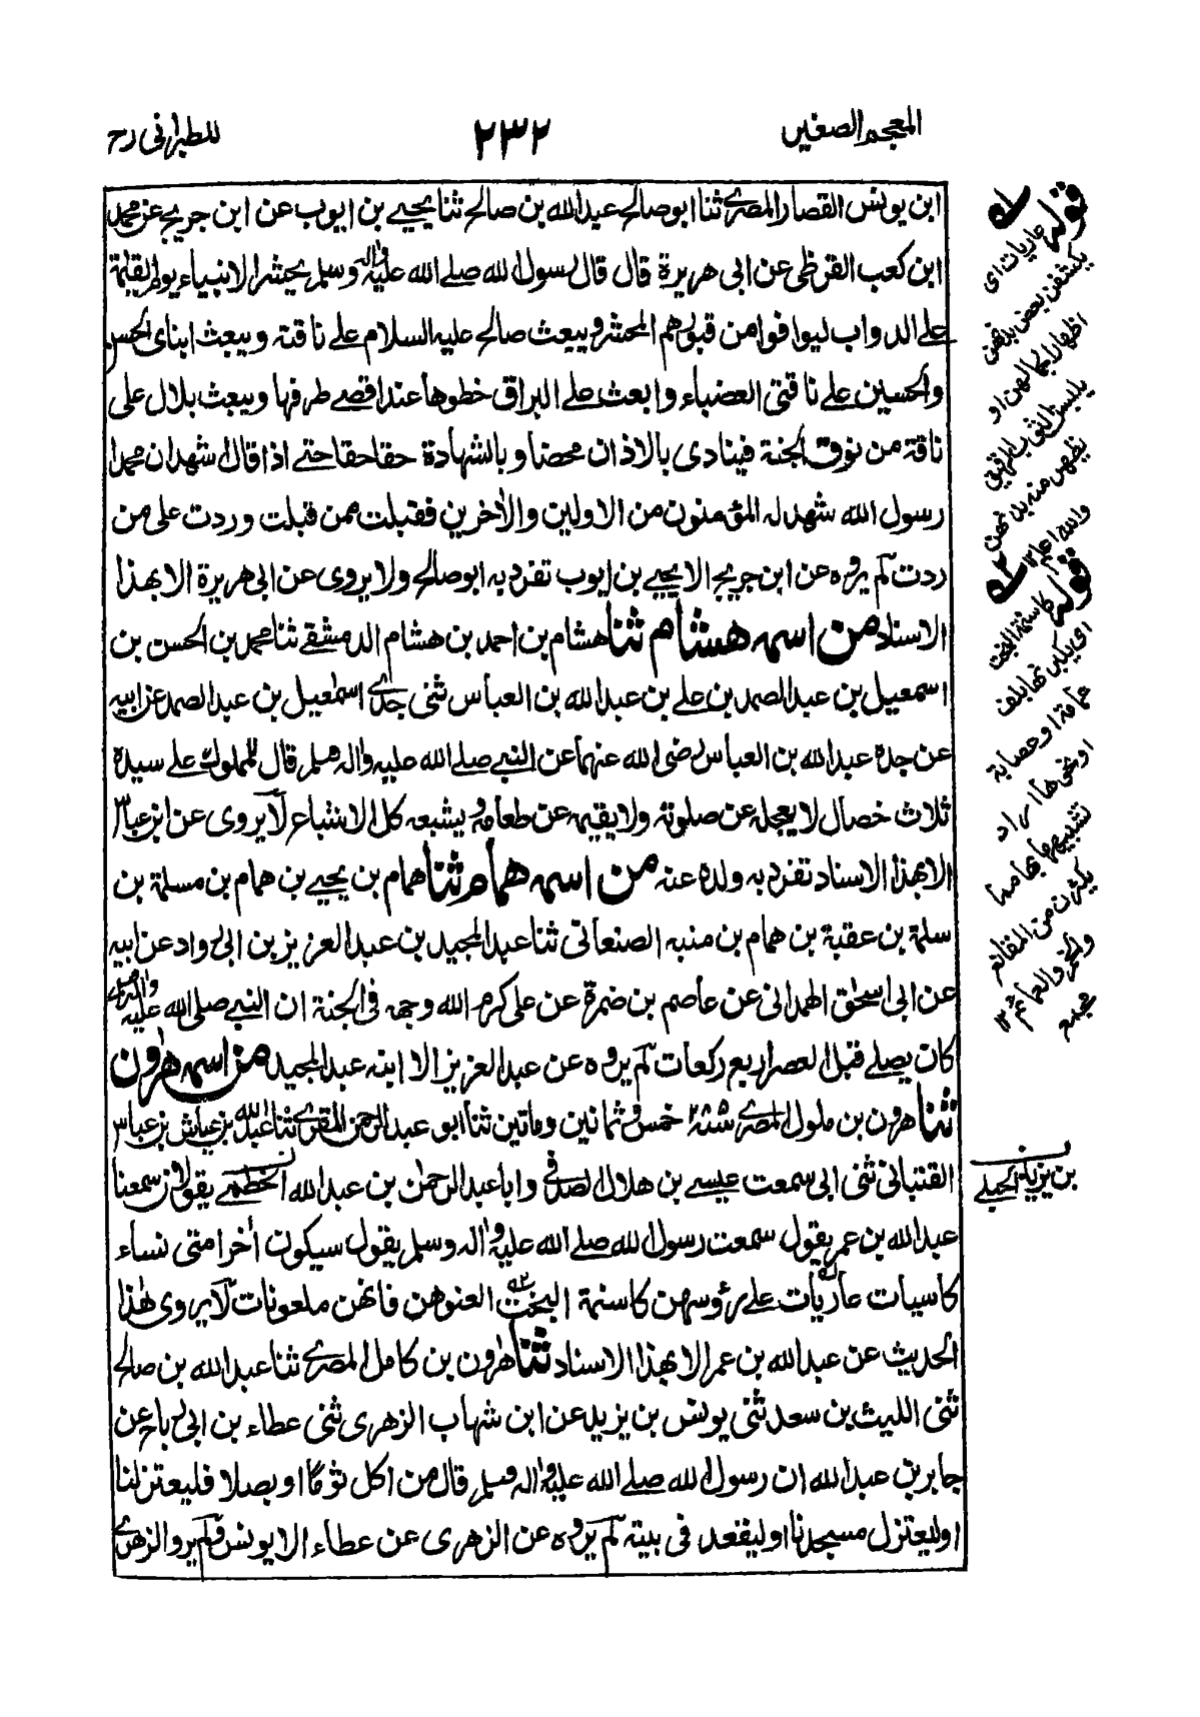 المعجم الصغير
٢٣٢
للطبرانی رح
ابن یونس القصار المصری ثنا ابو صالح عبدالله بن صالح ثنا یحیی بن ایوب عن ابن جریج عن محمد
ابن کعب القرظی عن ابی هریرة قال قال رسول الله صلے الله علیه واٰله وسلم یحشر الانبیاء یوم القیٰمة
علے الدواب لیوافوا من قبورهم المحشر و یبعث صالح علیه السلام علے ناقته ویبعث ابنای الحسن
والحسین علے ناقتی العضباء وابعث علے البراق خطوها عند اقصے طرفها ویبعث بلال علی
ناقة من نوق الجنة فینادی بالاذان محضا و بالشهادة حقا حقا حتے اذا قال اشهد ان محمدا
رسول الله شهد له المؤمنون من الاولین والاٰخرین فقبلت ممن قبلت و ردت علی من
ردت لم یروه عن ابن جریج الا یحیی بن ایوب تفرد به ابو صالح ولا یروی عن ابی هریرة الا بهذا
الاسناد من اسمه هشام ثنا هشام بن احمد بن هشام الدمشقے ثنا محمد بن الحسن بن
اسمعیل بن عبد الصمد بن علے بن عبدالله بن العباس ثنی جدی اسمٰعیل بن عبد الصمد عن ابیه
عن جده عبدالله بن العباس رضی الله عنهما عن النبے صلے الله علیه واٰله وسلم قال للمملوک علے سیده
ثلاث خصال لا یعجله عن صلوته ولا یقیمه عن طعامه و یشبعه کل الاشباع لا یروی عن ابن عباس
الا بهذا الاسناد تفرد به ولده عنه من اسمه همام ثنا همام بن یحیے بن همام بن مسلمة بن
سلمة بن عقبة بن همام بن منبه الصنعانی ثنا عبد المجید بن عبد العزیز بن ابی رواد عن ابیه
عن ابی اسحٰق الهمدانی عن عاصم بن ضمرة عن علی کرم الله وجهه فی الجنة ان النبے صلی الله علیه واٰله وسلم
کان یصلے قبل العصر اربع رکعات لم یروه عن عبد العزیز الا ابنه عبد المجید من اسمه هٰرون
ثنا هٰرون بن ملول المصری سنة ٢٨٥ خمس و ثمانین وماتین ثنا ابو عبد الرحمن المقری ثنا عبدالله بن عیاش بن عباس
القتبانی ثنی ابی سمعت عیسے بن هلال الصدفی و ابا عبد الرحمٰن بن عبدالله الخطمے یقولان سمعنا
عبدالله بن عمر یقول سمعت رسول الله صلے الله علیه واٰله وسلم یقول سیکون اٰخر امتی نساء
کاسیات عاریات علے رؤوسهن کاسنمة البخت العنوهن فانهن ملعونات لا یروی هٰذا
الحدیث عن عبدالله بن عمر الا بهذا الاسناد ثنا هٰرون بن کامل المصری ثنا عبدالله بن صالح
ثنی اللیث بن سعد ثنی یونس بن یزید عن ابن شهاب الزهری ثنی عطاء بن ابی رباح عن
جابر بن عبدالله ان رسول الله صلے الله علیه واٰله وسلم قال من اکل ثوما او بصلا فلیعتزلنا
او لیعتزل مسجدنا او لیقعد فی بیته لم یروه عن الزهری عن عطاء الا یونس ولم یرو الزهری
قوله
عاریات ای
یکشفن بعض بدنهن
اظهارا لجمالهن او
یلبسن الثیاب الرقیق
یظهر منه بدنهن
والله اعلم ١٢
قوله کاسنمة البخت
ای یکبرنها بلف
عمامة او عصابة
او نحوها اراد
تشبیهها بها مما
یکثرن من المقانع
والخمر والعمائم ١٢
مجمع
بن یزید الحبلے